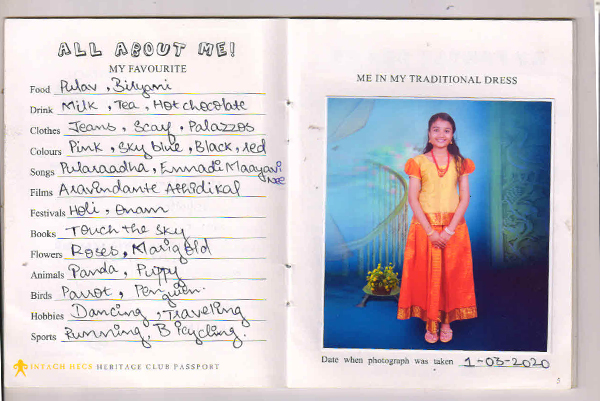 ALL ABOUT ME!
MY FAVOURITE
Food Pulav, Biryani
Drink Milk, Tea, Hot chocolate
Clothes Jeans, Scarf, Palazzos
Colours Pink, Sky blue, Black, red
Songs Pularaadha, Ennadi Maayavi Nee
Films Aravindante Athidikal
Festivals Holi, Onam
Books Touch the sky
Flowers Roses, Marigold
Animals Panda, Puppy
Birds Parrot, Penguien.
Hobbies Dancing, Traveling
Sports Running, Bicycling.
INTACH HECS HERITAGE CLUB PASSPORT
ME IN MY TRADITIONAL DRESS
Date when photograph was taken 1-03-2020
5